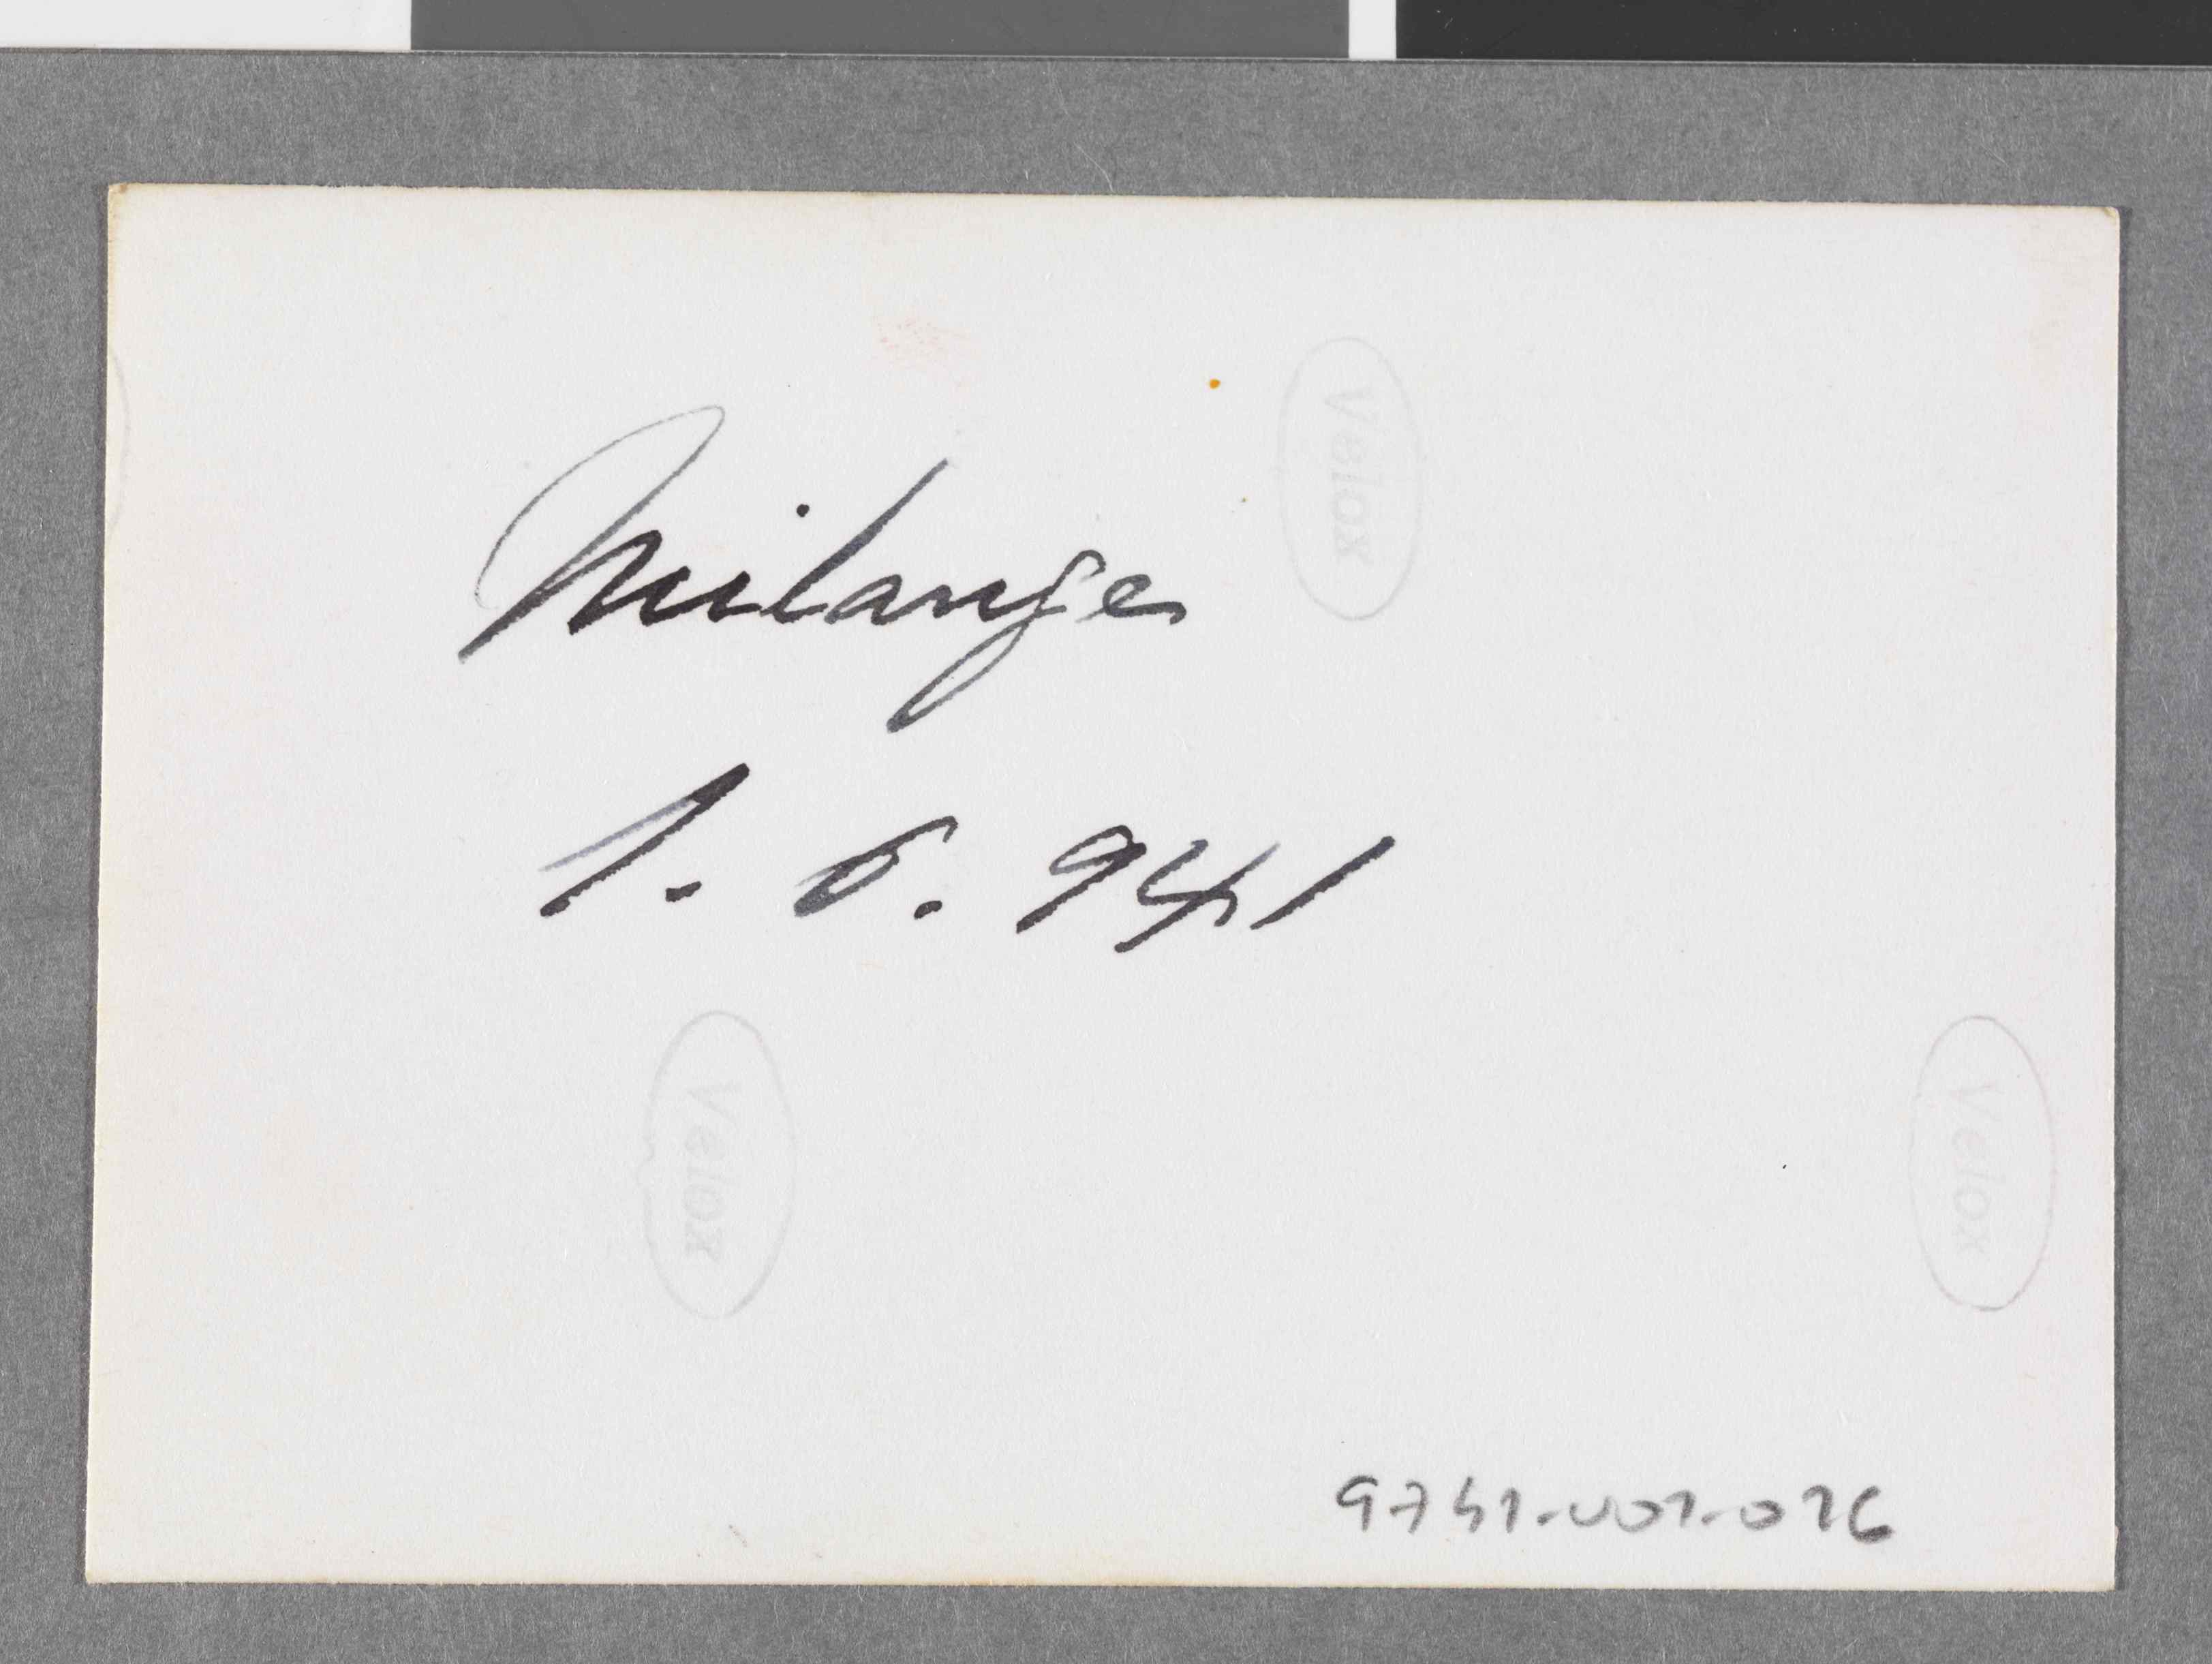 Milange
1. 6. 941
Velox
Velox
Velox
9741-001-016